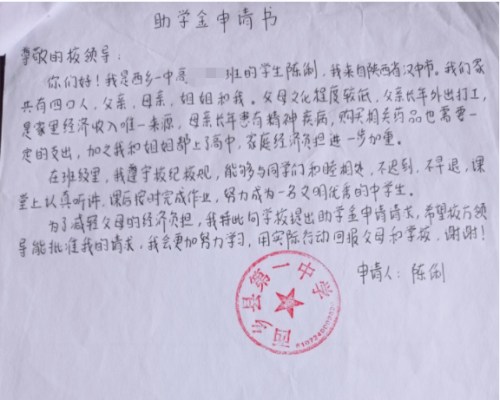 助学金申请书
尊敬的校领导：
你们好！我是西乡一中高 班的学生陈俐，我来自陕西省汉中市。我们家
共有四口人，父亲，母亲，姐姐和我。父母文化程度较低，父亲长年外出打工，
是家里经济收入唯一来源，母亲长年患有精神疾病，购买相关药品也需要一
定的支出，加之我和姐姐都上了高中，家庭经济负担进一步加重。
在班级里，我遵守校纪校规，能够与同学们和睦相处，不迟到，不早退，课
堂上认真听讲，课后按时完成作业，努力成为一名文明优秀的中学生。
为了减轻父母的经济负担，我特此向学校提出助学金申请请求，希望校方领
导能批准我的请求，我会更加努力学习，用实际行动回报父母和学校，谢谢！
申请人：陈俐
西乡县第一中学